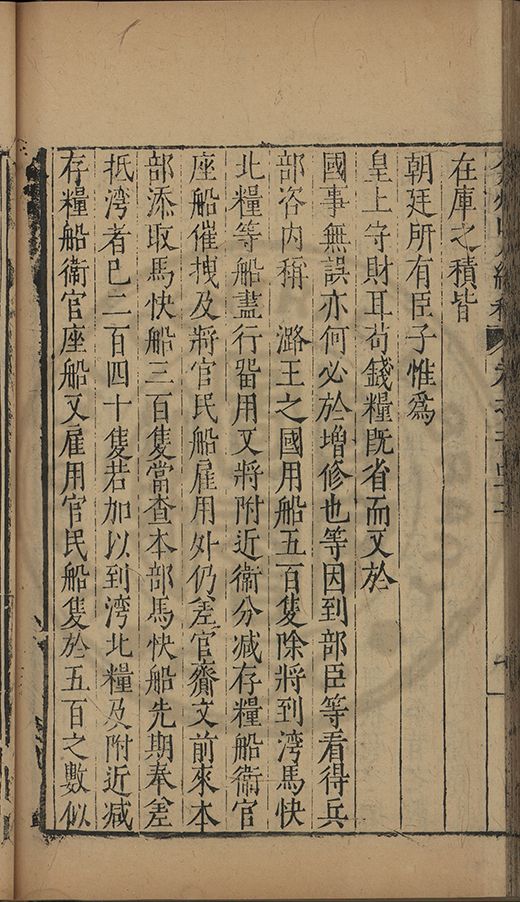 在庫之積皆
朝廷所有臣子惟爲
皇上守財耳苟錢糧既省而又於
國事無誤亦何必於增修也等因到部臣等看得兵
部咨内稱　潞王之國用船五百隻除將到湾馬快
北糧等船盡行畱用又將附近衞分减存糧船衞官
座船催拽及將官民船雇用外仍差官齎文前來本
部添取馬快船三百隻當查本部馬快船先期奉差
抵湾者已二百四十隻若加以到湾北糧及附近减
存糧船衞官座船又雇用官民船隻於五百之數似